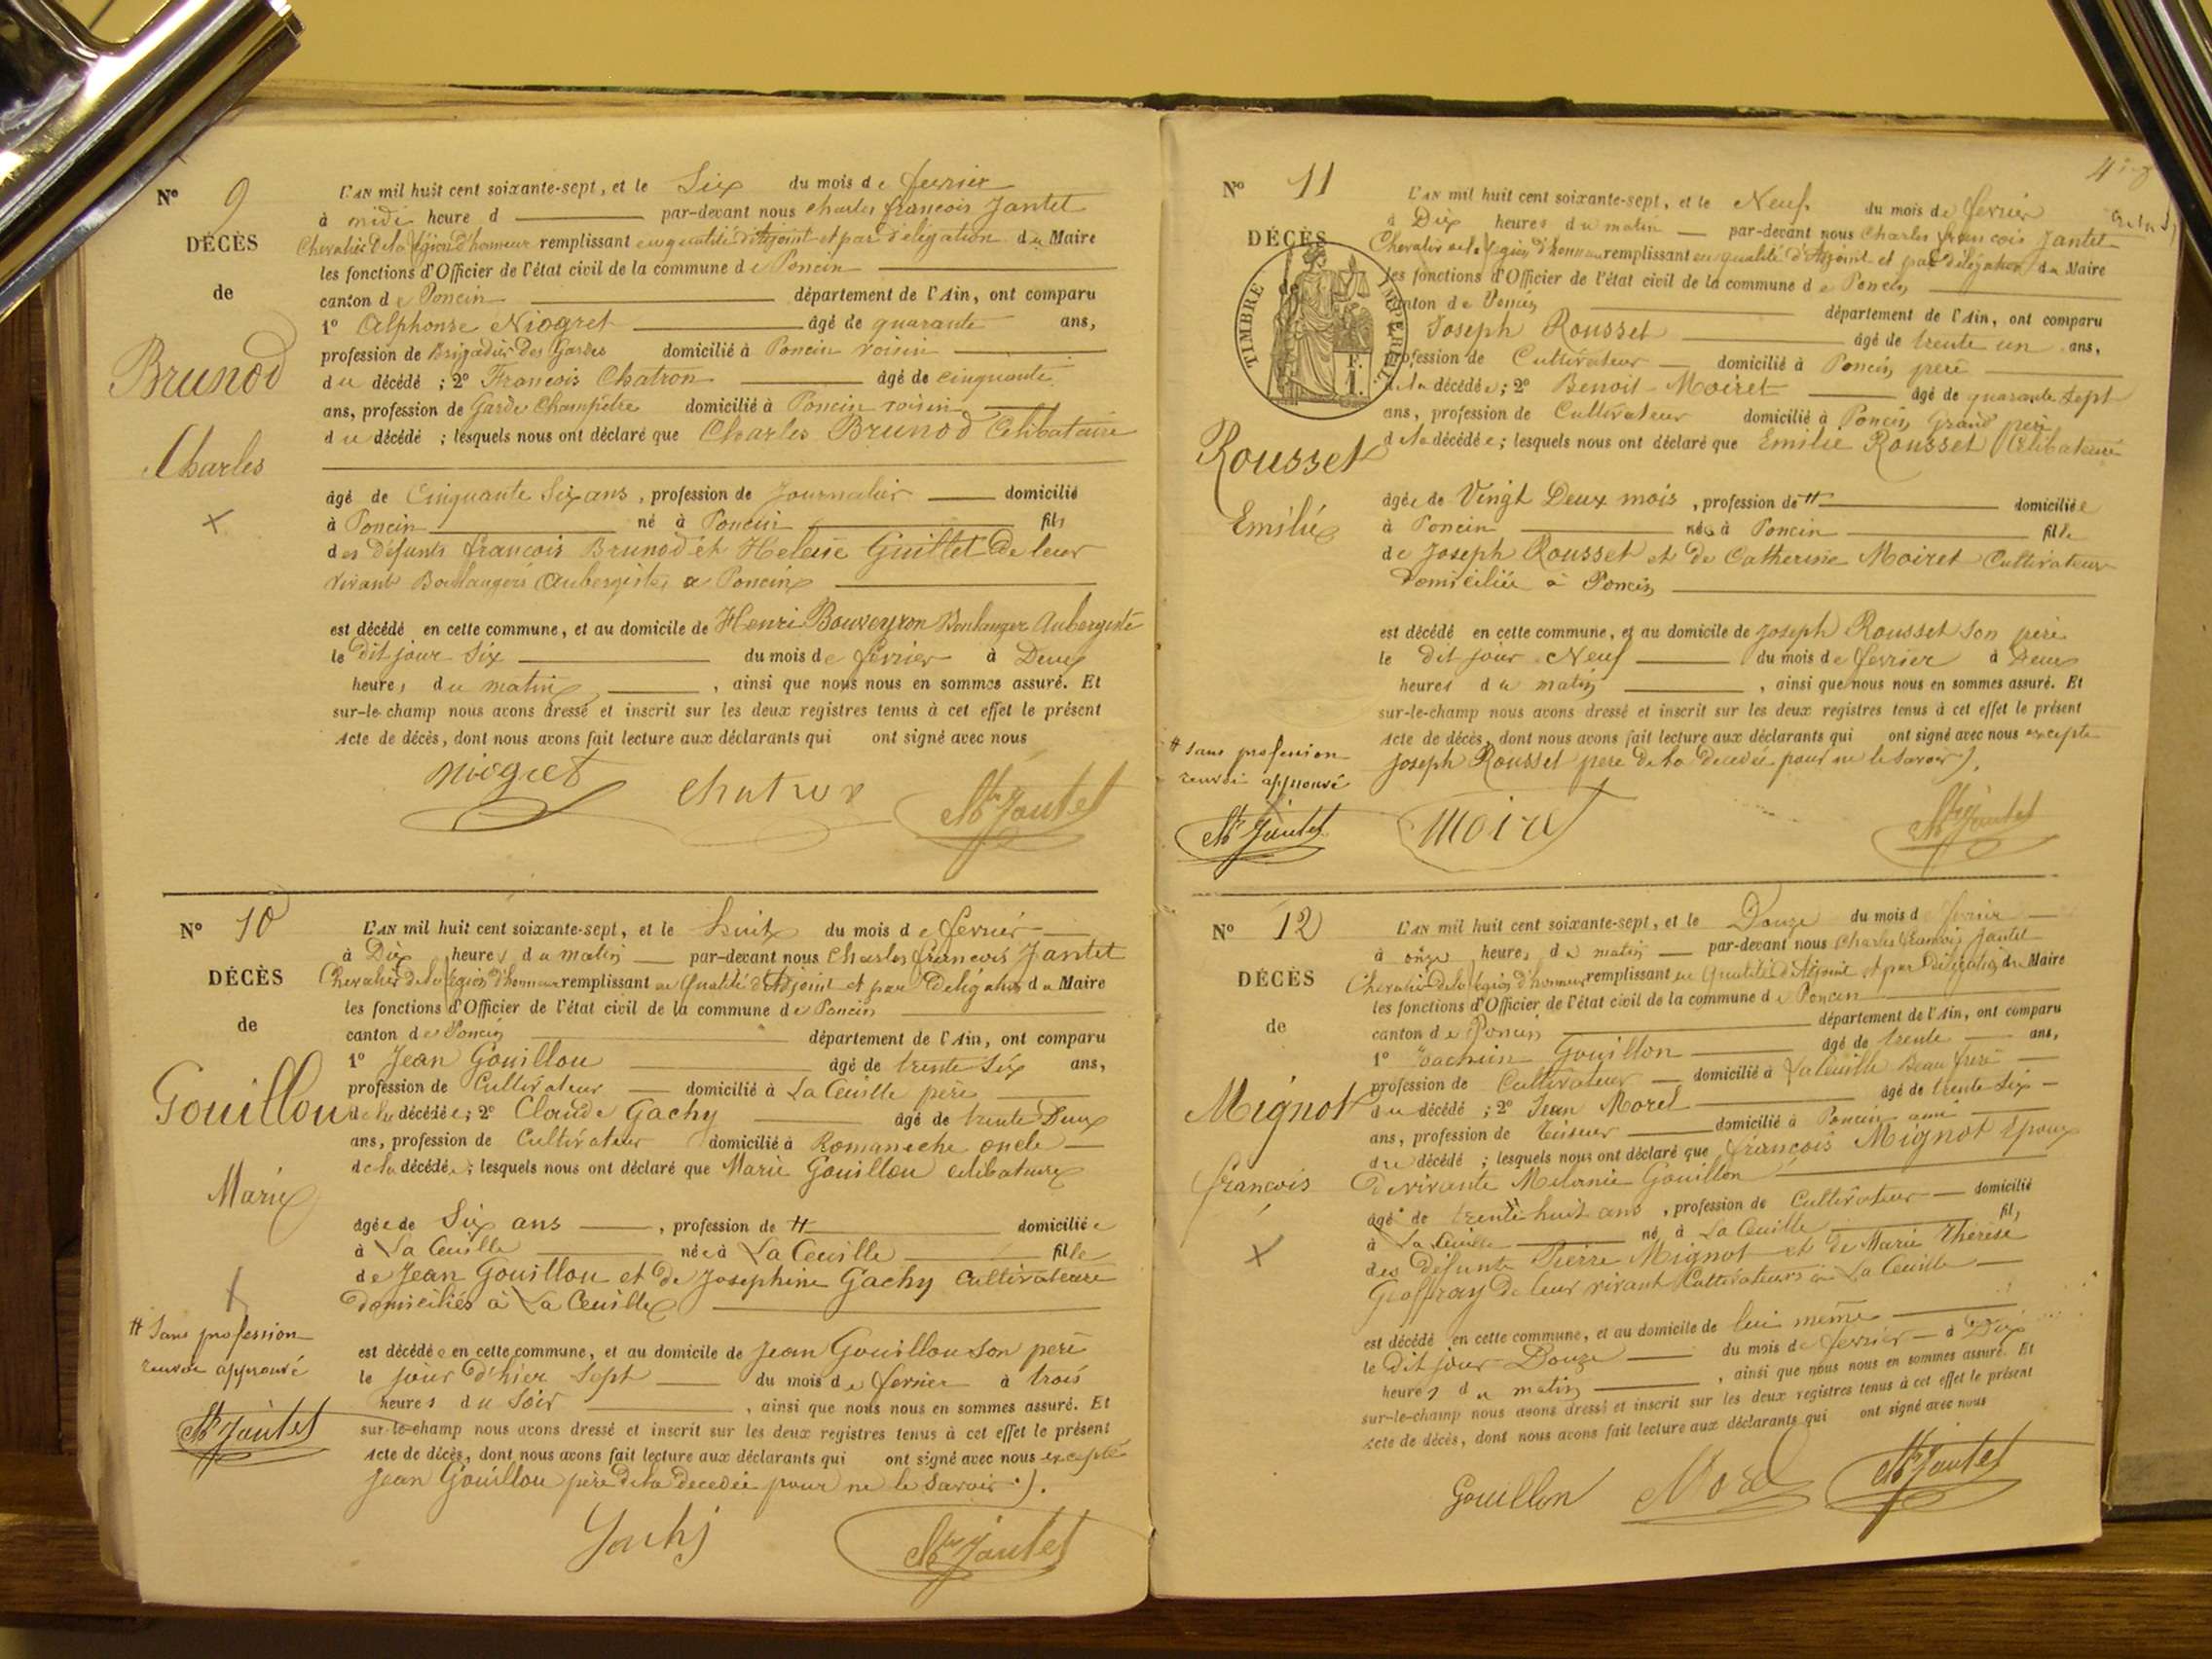 N° 9
DÉCÈS
de
Brunod
Charles
L'AN mil huit cent soixante-sept, et le Six du mois de fevrier
à midi heure d par-devant nous Charles françois Jantet
Chevalier de la légion d'honneur remplissant en qualité d'Adjoint et par délégation du Maire
les fonctions d'Officier de l'état civil de la commune de Poncin
canton de Poncin département de l'Ain, ont comparu
1° Alphonse Niogret âgé de quarante ans,
profession de Brigadier des Gardes domicilié à Poncin voisin
du décédé ; 2° François Chatron âgé de cinquante
ans, profession de Garde Champêtre domicilié à Poncin voisin
du décédé ; lesquels nous ont déclaré que Charles Brunod Célibataire
âgé de Cinquante Six ans, profession de Journalier domicilié
à Poncin né à Poncin fils
des défunts françois Brunod et Heleine Guillet De leur
vivant Boulangers Aubergistes a Poncin
est décédé en cette commune, et au domicile de Henri Bouveyron Boulanger Aubergiste
le dit jour Six du mois de février à Deux
heures du matin, ainsi que nous nous en sommes assuré. Et
sur-le-champ nous avons dressé et inscrit sur les deux registres tenus à cet effet le présent
Acte de décès, dont nous avons fait lecture aux déclarants qui ont signé avec nous
Niogret Chatron Jantet
N° 10
DÉCÈS
de
Gouillou
Marie
# Sans profession
renvoi approuvé
Jantet
L'AN mil huit cent soixante-sept, et le huit du mois de fevrier
à Dix heures du matin par-devant nous Charles françois Jantet
Chevalier de la légion d'honneur remplissant en Qualité d'Adjoint et par Délégation du Maire
les fonctions d'Officier de l'état civil de la commune de Poncin
canton de Poncin département de l'Ain, ont comparu
1° Jean Gouillou âgé de trente Six ans,
profession de Cultivateur domicilié à La Cueille père
de la décédée ; 2° Claude Gachy âgé de trente Deux
ans, profession de Cultivateur domicilié à Romaneche oncle
de la décédée ; lesquels nous ont déclaré que Marie Gouillou célibataire
âgée de Six ans, profession de # domiciliée
à La Cueille née à La Cueille fille
de Jean Gouillou et de Josephine Gachy Cultivateurs
Domiciliés à La Cueille
est décédée en cette commune, et au domicile de Jean Gouillou Son père
le jour d'hier Sept du mois de fevrier à trois
heures du Soir, ainsi que nous nous en sommes assuré. Et
sur-le-champ nous avons dressé et inscrit sur les deux registres tenus à cet effet le présent
Acte de décès, dont nous avons fait lecture aux déclarants qui ont signé avec nous excepté
Jean Gouillou père de la décédée pour ne le savoir.
Gachy Jantet
N° 11
DÉCÈS
de
TIMBRE IMPÉRIAL
1 F.
Rousset
Emilie
# Sans profession
renvoi approuvé
Jantet
L'AN mil huit cent soixante-sept, et le Neuf du mois de fevrier
à Dix heures du matin par-devant nous Charles françois Jantet
Chevalier de la légion d'honneur remplissant en qualité d'Adjoint et par délégation du Maire
les fonctions d'Officier de l'état civil de la commune de Poncin
canton de Poncin département de l'Ain, ont comparu
Joseph Rousset âgé de trente un ans,
profession de Cultivateur domicilié à Poncin père
de la décédée ; 2° Benoit Moiret âgé de quarante Sept
ans, profession de Cultivateur domicilié à Poncin Grand père
de la décédée ; lesquels nous ont déclaré que Emilie Rousset Célibataire
âgée de Vingt Deux mois, profession de # domiciliée
à Poncin née à Poncin fille
de Joseph Rousset et de Catherine Moiret Cultivateurs
Domiciliés à Poncin
est décédé en cette commune, et au domicile de Joseph Rousset Son père
le dit jour Neuf du mois de fevrier à Deux
heures du matin, ainsi que nous nous en sommes assuré. Et
sur-le-champ nous avons dressé et inscrit sur les deux registres tenus à cet effet le présent
Acte de décès, dont nous avons fait lecture aux déclarants qui ont signé avec nous excepté
Joseph Rousset père de la décédée pour ne le savoir.
Moiret Jantet
N° 12
DÉCÈS
de
Mignot
françois
L'AN mil huit cent soixante-sept, et le Douze du mois de fevrier
à onze heures du matin par-devant nous Charles françois Jantet
Chevalier de la légion d'honneur remplissant en Qualité d'Adjoint et par Délégation du Maire
les fonctions d'Officier de l'état civil de la commune de Poncin
canton de Poncin département de l'Ain, ont comparu
1° Gouillon âgé de trente ans,
profession de Cultivateur domicilié à La Cueille Beau frère
du décédé ; 2° Jean Morel âgé de trente Six
ans, profession de domicilié à Poncin ami
du décédé ; lesquels nous ont déclaré que françois Mignot Epoux
De vivante Melanie Gouillon
âgé de trente huit ans, profession de Cultivateur domicilié
à La Cueille né à La Cueille fils
des défunts Pierre Mignot et de Marie Thérèse
Geoffray De leur vivant Cultivateurs à La Cueille
est décédé en cette commune, et au domicile de lui même
le Dit jour Douze du mois de fevrier à Dix
heures du matin, ainsi que nous nous en sommes assuré. Et
sur-le-champ nous avons dressé et inscrit sur les deux registres tenus à cet effet le présent
Acte de décès, dont nous avons fait lecture aux déclarants qui ont signé avec nous
Gouillon Morel Jantet